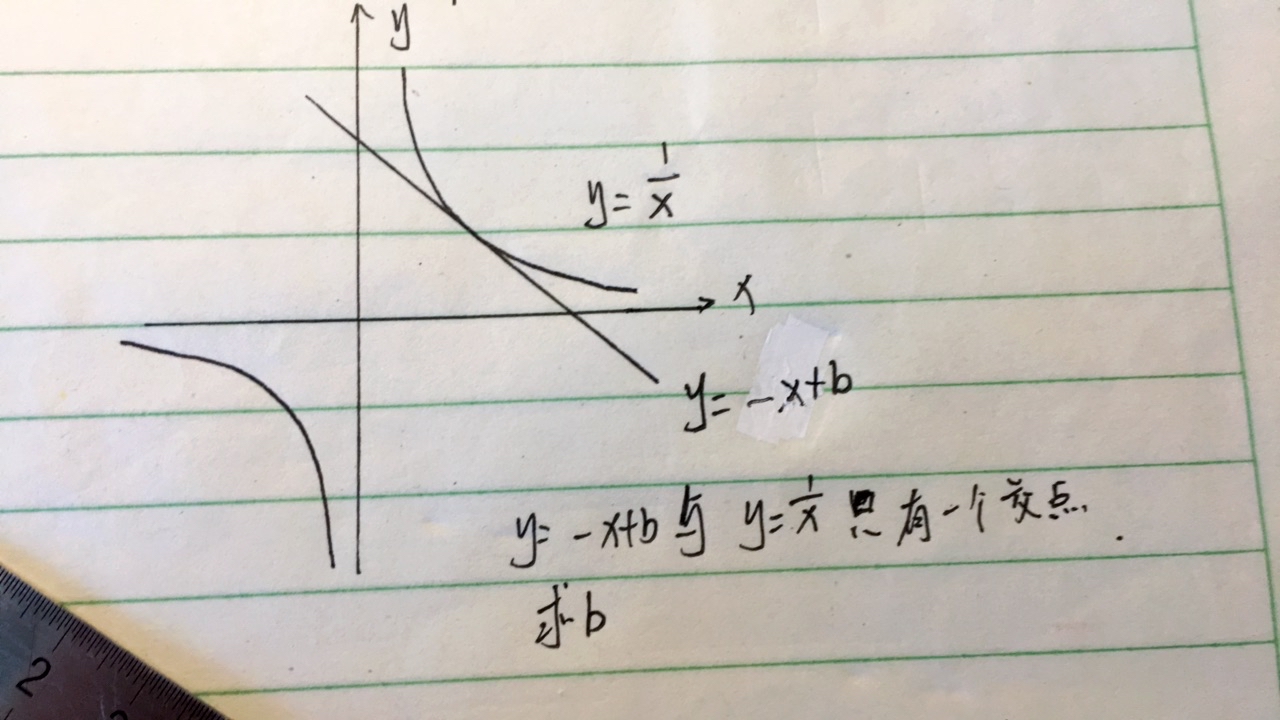 y
y = 1/x
x
y = -x+b
y = -x+b 与 y = 1/x 只有一个交点.
求 b
2